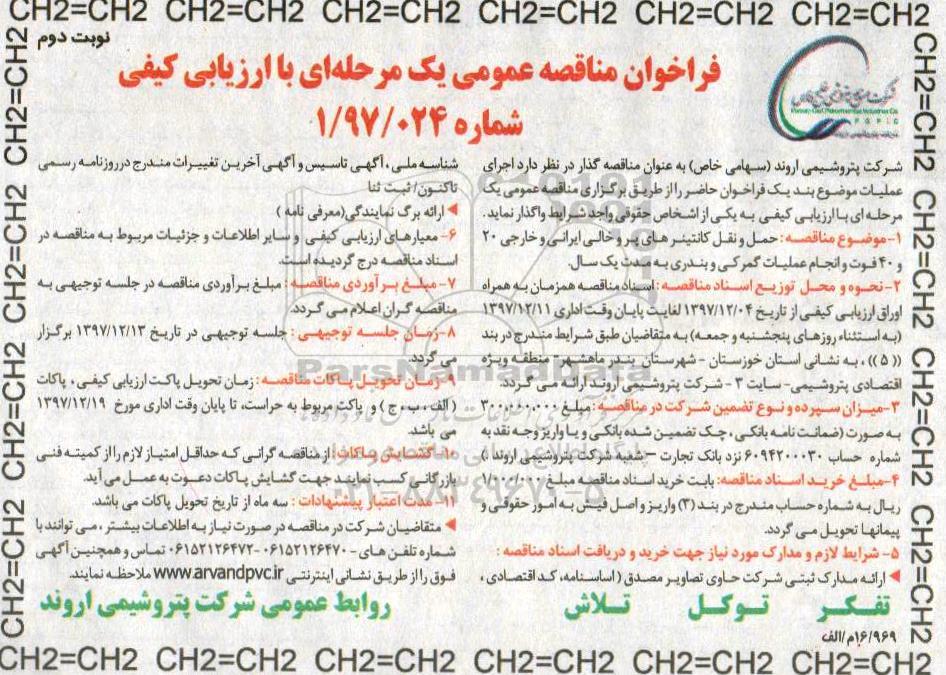 CH2=CH2 CH2=CH2 CH2=CH2 CH2=CH2 CH2=CH2 CH2=CH2
نوبت دوم
فراخوان مناقصه عمومی یک مرحله‌ای با ارزیابی کیفی
شماره ۱/۹۷/۰۲۴
شرکت پتروشیمی اروند (سهامی خاص) به عنوان مناقصه گذار در نظر دارد اجرای
عملیات موضوع بند یک فراخوان حاضر را از طریق برگزاری مناقصه عمومی یک
مرحله ای با ارزیابی کیفی به یکی از اشخاص حقوقی واجد شرایط واگذار نماید.
۱-موضوع مناقصه: حمل و نقل کانتینر های پر و خالی ایرانی و خارجی ۲۰
و ۴۰ فوت و انجام عملیات گمرکی و بندری به مدت یک سال.
۲- نحوه و محل توزیع اسناد مناقصه: اسناد مناقصه همزمان به همراه
اوراق ارزیابی کیفی از تاریخ ۱۳۹۷/۱۲/۰۴ لغایت پایان وقت اداری ۱۳۹۷/۱۲/۱۱
(به استثناء روزهای پنجشنبه و جمعه) به متقاضیان طبق شرایط مندرج در بند
(( ۵ )) ، به نشانی استان خوزستان - شهرستان بندر ماهشهر- منطقه ویژه
اقتصادی پتروشیمی- سایت ۳ - شرکت پتروشیمی اروند ارائه می گردد.
۳-میزان سپرده و نوع تضمین شرکت در مناقصه: مبلغ
به صورت (ضمانت نامه بانکی ، چک تضمین شده بانکی و یا واریز وجه نقد به
شماره حساب ۶۰۹۴۲۰۰۰۳۰ نزد بانک تجارت – شعبه شرکت پتروشیمی اروند )
۴-مبلغ خرید اسناد مناقصه: بابت خرید اسناد مناقصه مبلغ
ریال به شماره حساب مندرج در بند (۳) واریز و اصل فیش به امور حقوقی و
پیمانها تحویل می گردد.
۵- شرایط لازم و مدارک مورد نیاز جهت خرید و دریافت اسناد مناقصه :
ارائه مدارک ثبتی شرکت حاوی تصاویر مصدق ( اساسنامه، کد اقتصادی ،
شناسه ملی ، آگهی تاسیس و آگهی آخرین تغییرات مندرج در روزنامه رسمی
تاکنون/ ثبت ثنا
ارائه برگ نمایندگی(معرفی نامه )
۶- معیارهای ارزیابی کیفی و سایر اطلاعات و جزئیات مربوط به مناقصه در
اسناد مناقصه درج گردیده است.
۷- مبلغ برآوردی مناقصه : مبلغ برآوردی مناقصه در جلسه توجیهی به
مناقصه گران اعلام می گردد.
۸-زمان جلسه توجیهی : جلسه توجیهی در تاریخ ۱۳۹۷/۱۲/۱۳ برگزار
می گردد.
۹-زمان تحویل پاکات مناقصه : زمان تحویل پاکت ارزیابی کیفی ، پاکات
( الف ، ب ، ج ) و پاکت مربوط به حراست، تا پایان وقت اداری مورخ ۱۳۹۷/۱۲/۱۹
می باشد.
۱۰- گشایش پاکات : از مناقصه گرانی که حداقل امتیاز لازم را از کمیته فنی
بازرگانی کسب نمایند جهت گشایش پاکات دعوت به عمل می آید.
۱۱- مدت اعتبار پیشنهادات : سه ماه از تاریخ تحویل پاکات می باشد.
متقاضیان شرکت در مناقصه در صورت نیاز به اطلاعات بیشتر ، می توانند با
شماره تلفن های - ۰۶۱۵۲۱۲۶۴۷۰ - ۰۶۱۵۲۱۲۶۴۷۲ تماس و همچنین آگهی
فوق را از طریق نشانی اینترنتی www.arvandpvc.ir ملاحظه نمایند.
تفکر توکل تلاش
روابط عمومی شرکت پتروشیمی اروند
۱۶/۹۶۹/م/الف
CH2=CH2 CH2=CH2 CH2=CH2 CH2=CH2 CH2=CH2 CH2=CH2
CH2=CH2 CH2=CH2 CH2=CH2 CH2=CH2
CH2=CH2 CH2=CH2 CH2=CH2 CH2=CH2
ParsNamadData